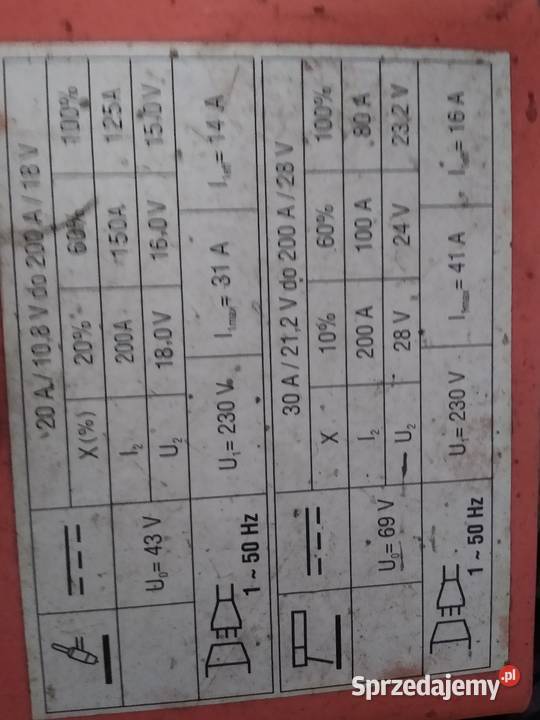 20 A / 10.8 V do 200 A / 18 V
X (%) 20% 60% 100%
I₂ 200A 150A 125A
U₀= 43 V
U₂ 18.0V 16.0V 15.0V
1 ~ 50 Hz
U₁= 230 V I₁max= 31 A I₁eff= 14 A
30 A / 21,2 V do 200 A / 28 V
X 10% 60% 100%
I₂ 200 A 100 A 80 A
U₀= 69 V
U₂ 28 V 24V 23.2 V
1 ~ 50 Hz
U₁= 230 V I₁max= 41 A I₁eff= 16 A
Sprzedajemy.pl